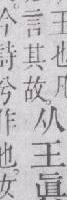 王也凡
言其故。从王眞
今詩兮作也。女